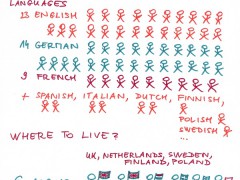 LANGUAGES
13 ENGLISH
14 GERMAN
9 FRENCH
+ SPANISH, ITALIAN, DUTCH, FINNISH,
POLISH
SWEDISH
...
WHERE TO LIVE?
UK, NETHERLANDS, SWEDEN,
FINLAND, POLAND